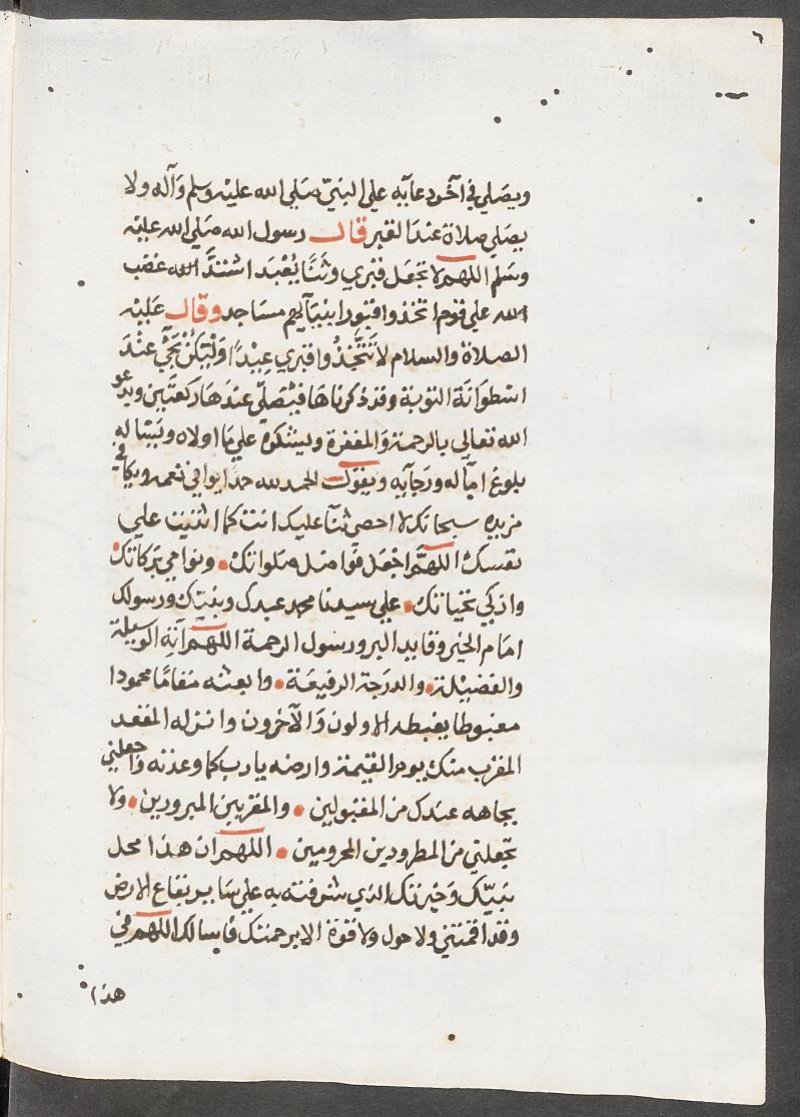 ويصلي في آخر دعآيه علي النبيّ صَلي الله عليه وسلم وَآله ولا
يصَلي صلاة عندَ القبر قال رسول الله صَلي الله عليه
وسَلم اللهم لا تجعَل قبري وثَنًا يُعْبَد اشتدَّ الله غضب
الله علي قوم اتخذوا قبورا نبيآيهم مسَاجد وقال عَليْه
الصلاة والسلام لا تَتَّخِذُوا قبري عِيْدًا وَلْيَكُنْ يَجَيْ عنْدَ
اسْطوَانَة التوبة وقد ذكرناها فيْصَلّي عندَهَا ركعتين ويدعو
الله تعالي بالرحمة وَالمغفرة ويشكره علي مَا اولاه ويَسْاله
بلوغ امآله ورَجآيه ويقول الحمد لله حمدًا يوافي نعمه ويكافي
مزيده سبحانك لا احصي ثنآ عليك انت كما اثنيت علي
نفسك اللهمَّ اجْعَل فواضل صَلواتك وَنوامي بَركاتك
وازكي تحياتك علي سيدنا محمد عبدك ونبيّك ورسولك
امام الخير وقايد البر ورسول الرحمة اللهم آتِهِ الوسيلة
والفضيْلة والدرَجة الرفيعَة وابعثه مقامًا محمودا
مغبوطا يغبطه الاولون وَالآخرون وانزله المقعد
المقرب منك يوم القيمة وارضه يارب كما وعدته واجعلني
بجاهه عندك من المقبولين والمقربين المبرورين ولا
تجعلني من المطرودين المحرومين اللهم ان هذا محل
نبيّك وَخيرتك الذي شرفته به علي سَاير بقاع الارض
وقد اقمتني ولا حول ولا قوّة الا برحمتك فاسالك اللهم في
هذا